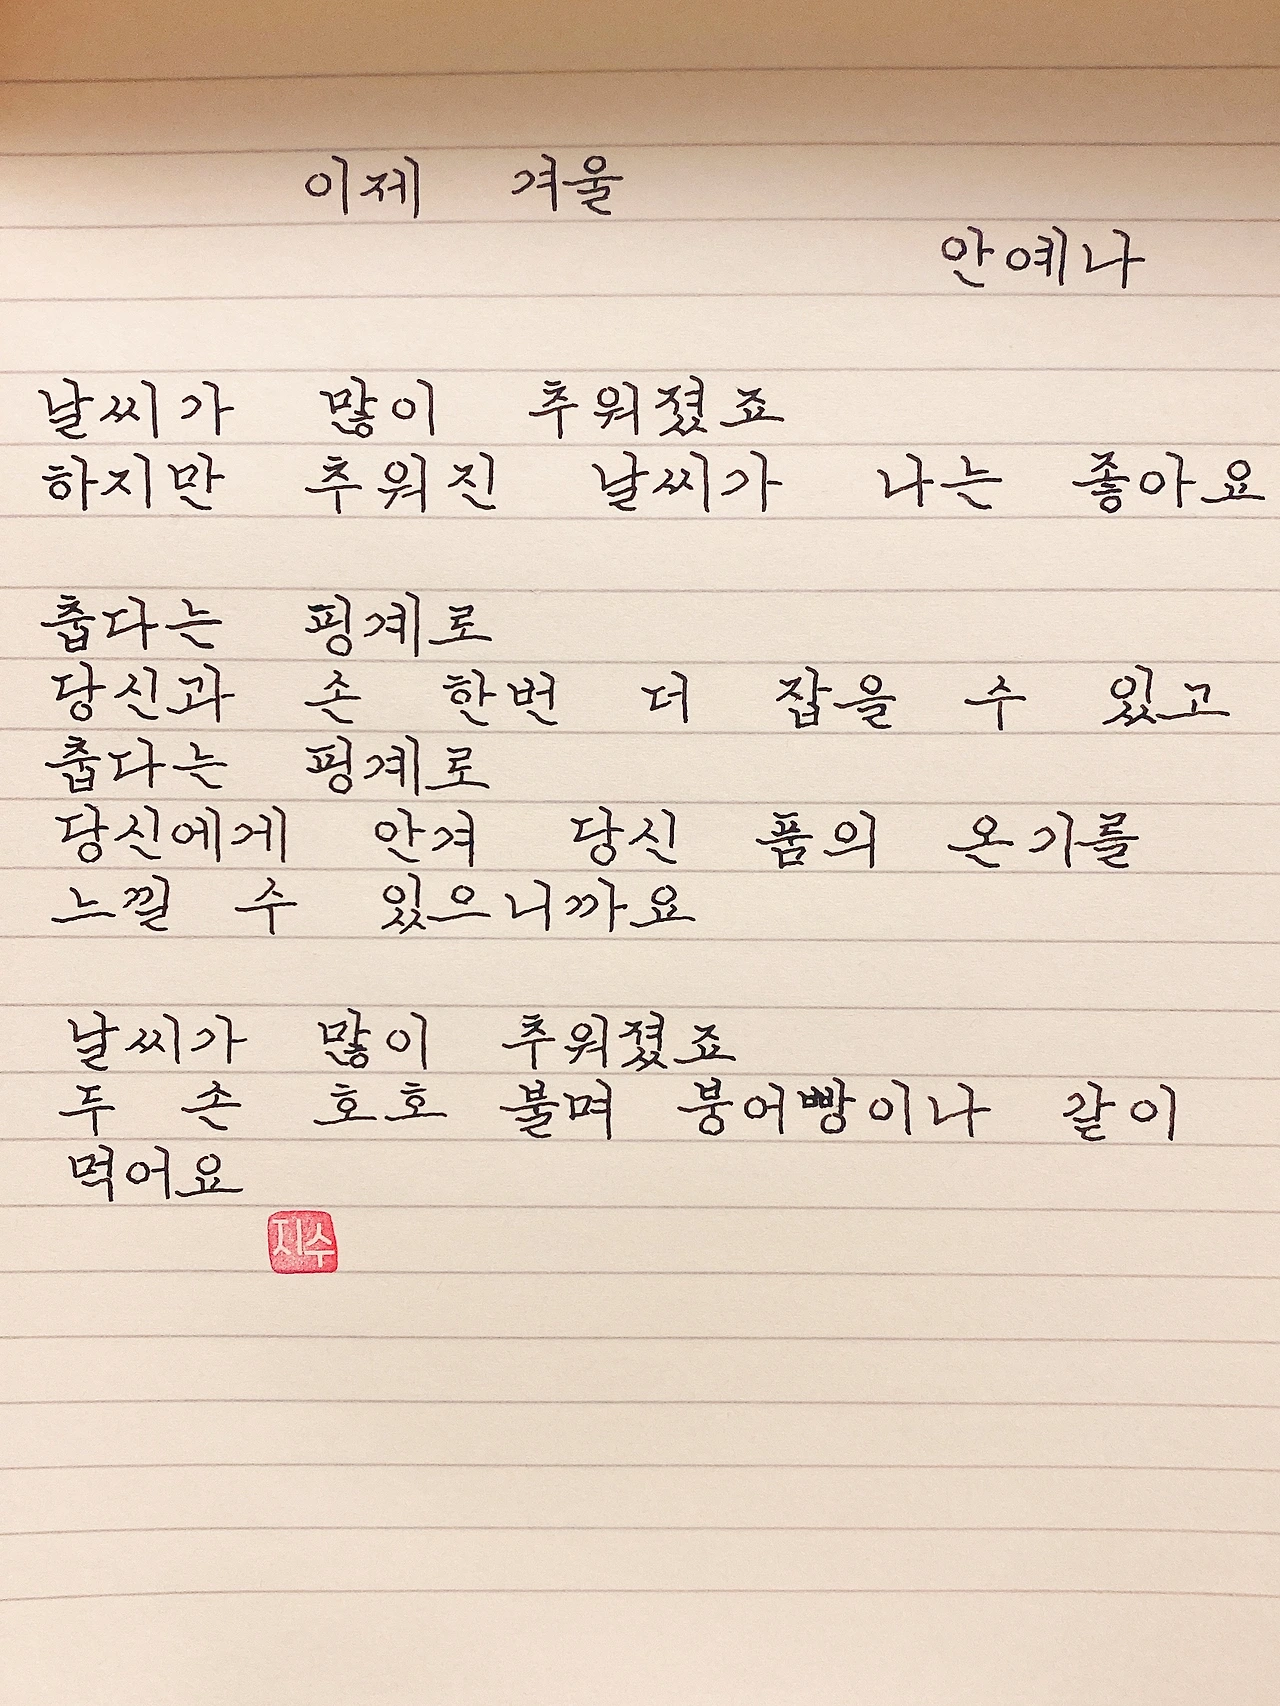 이제 겨울
안예나
날씨가 많이 추워졌죠
하지만 추워진 날씨가 나는 좋아요
춥다는 핑계로
당신과 손 한번 더 잡을 수 있고
춥다는 핑계로
당신에게 안겨 당신 품의 온기를
느낄 수 있으니까요
날씨가 많이 추워졌죠
두 손 호호 불며 붕어빵이나 같이
먹어요
지수